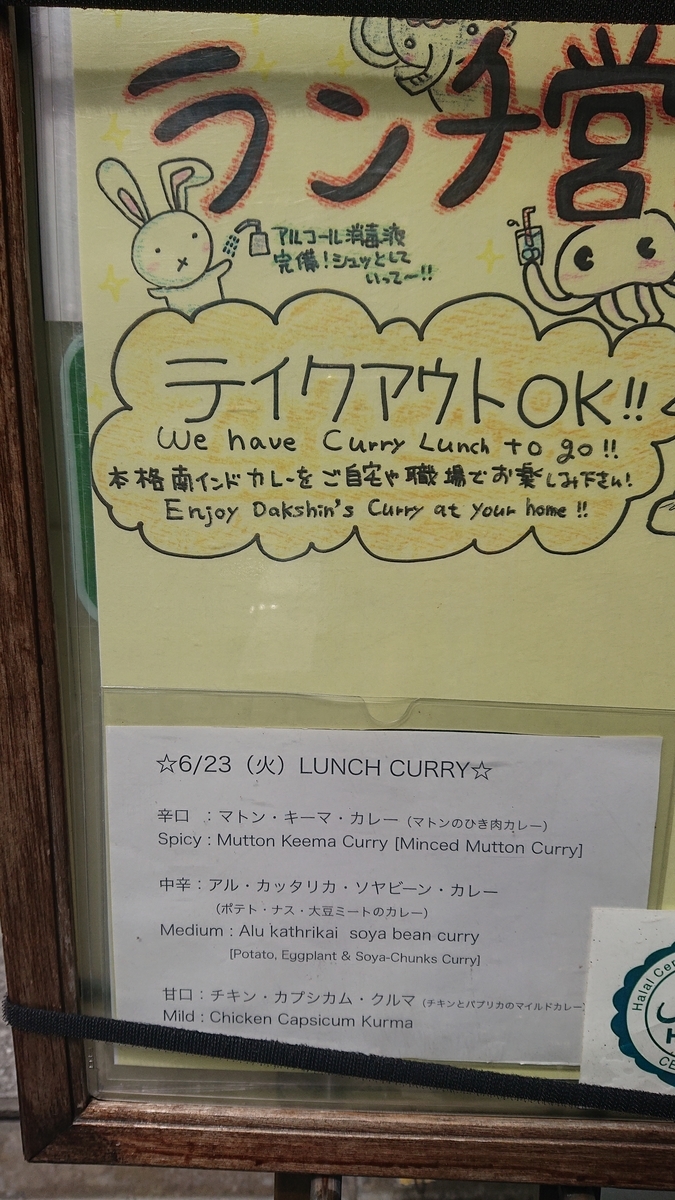 ランチ営
アルコール消毒液
完備！シュッとして
いって〜!!
テイクアウトOK!!
We have Curry Lunch to go!!
本格南インドカレーをご自宅や職場でお楽しみ下さい!
Enjoy Dakshin's Curry at your home!!
☆6/23（火）LUNCH CURRY☆
辛口　：マトン・キーマ・カレー（マトンのひき肉カレー）
Spicy : Mutton Keema Curry [Minced Mutton Curry]
中辛：アル・カッタリカ・ソヤビーン・カレー
（ポテト・ナス・大豆ミートのカレー）
Medium : Alu kathrikai soya bean curry
[Potato, Eggplant & Soya-Chunks Curry]
甘口：チキン・カプシカム・クルマ（チキンとパプリカのマイルドカレー
Mild : Chicken Capsicum Kurma
Halal Cer